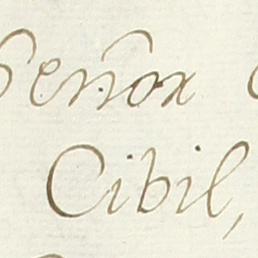 Señor
Cibil,